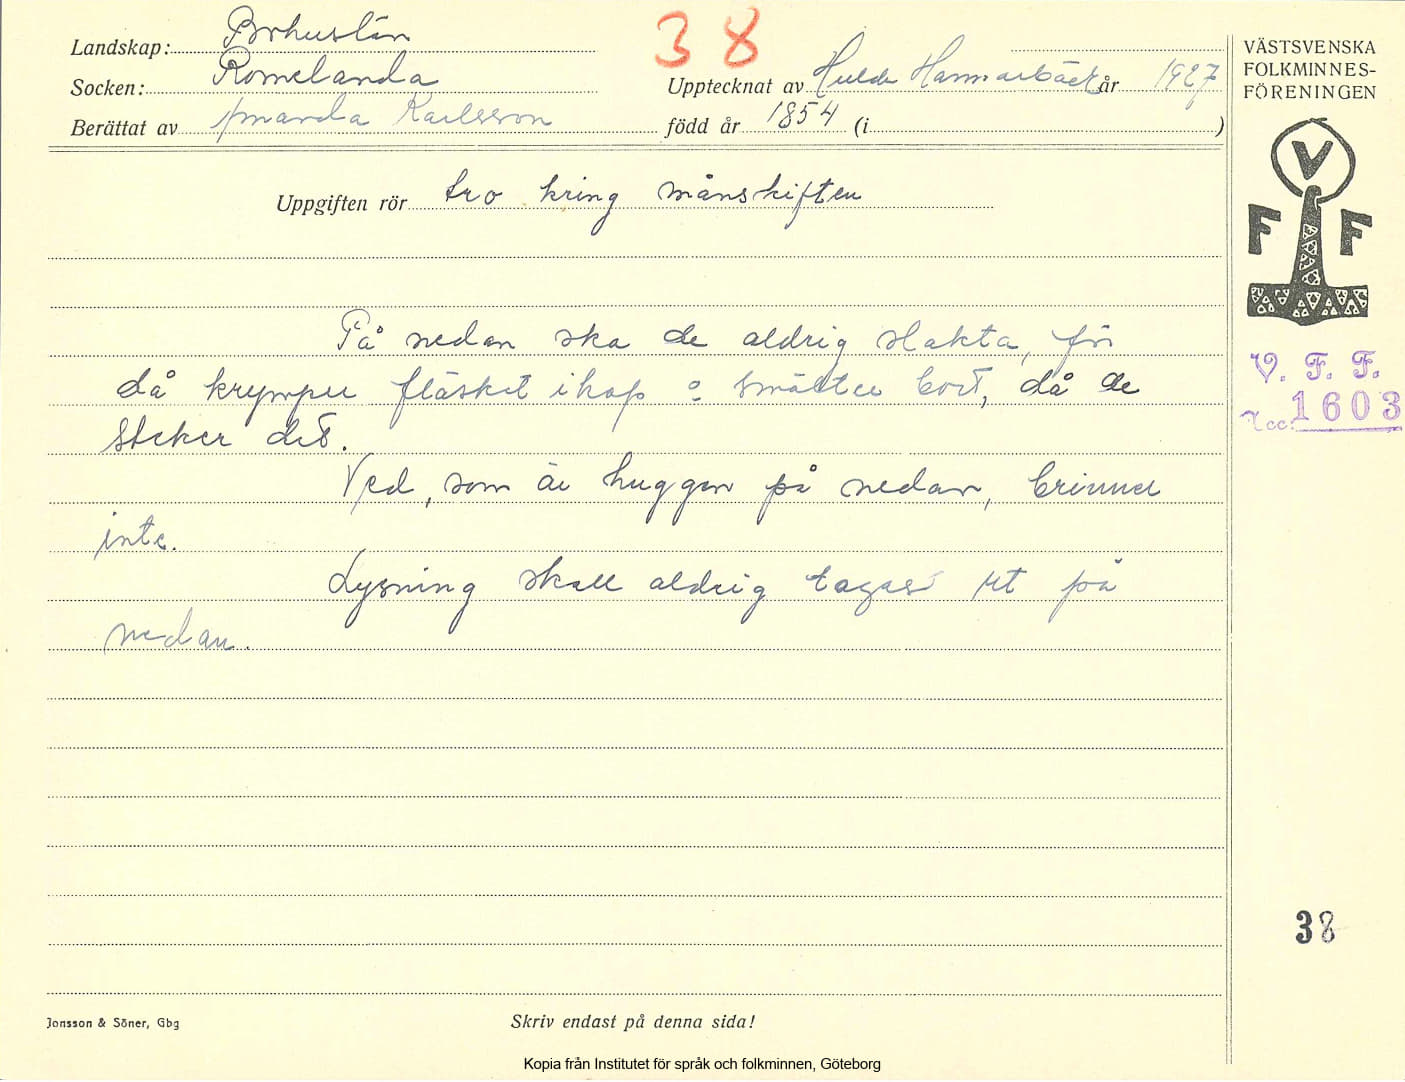 Landskap: Bohuslän
Socken: Romelanda
Berättat av Amanda Karlsson
38
Upptecknat av Hulda Hammarbäck år 1927
född år 1854 (i )
VÄSTSVENSKA
FOLKMINNES-
FÖRENINGEN
V
F F
V. F. F.
Acc. 1603
Uppgiften rör tro kring månskiften
På nedan ska de aldrig slakta, för
då krymper fläsket ihop o smälter bort, då de
steker det.
Ved, som är huggen på nedan, brinner
inte.
Lysning skall aldrig tagas ut på
nedan.
38
Jonsson & Söner, Gbg
Skriv endast på denna sida!
Kopia från Institutet för språk och folkminnen, Göteborg